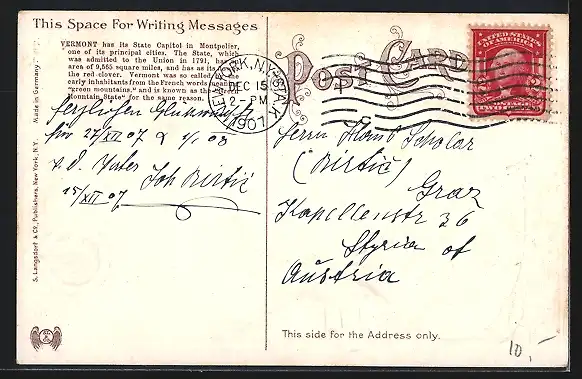 This Space For Writing Messages
VERMONT has its State Capitol in Montpelier,
one of its principal cities. The State, which
was admitted to the Union in 1791, has an
area of 9,565 square miles, and has as its
the red clover. Vermont was so called by the
early inhabitants from the French words meaning
"green mountains," and is known as the "Green
Mountain State" for the same reason.
für 27/XII 07 & 1/1 08
15/XII 07
Made in Germany
S. Langsdorf & Co., Publishers, New York, N.Y.
POST CARD
NEW YORK, N.Y. STA.
DEC 15
2-PM
1907
UNITED STATES
OF AMERICA
2 2
POSTAGE
TWO
Herrn
Graz
Kapellenstr 36
Styria of
Austria
This side for the Address only.
10,-